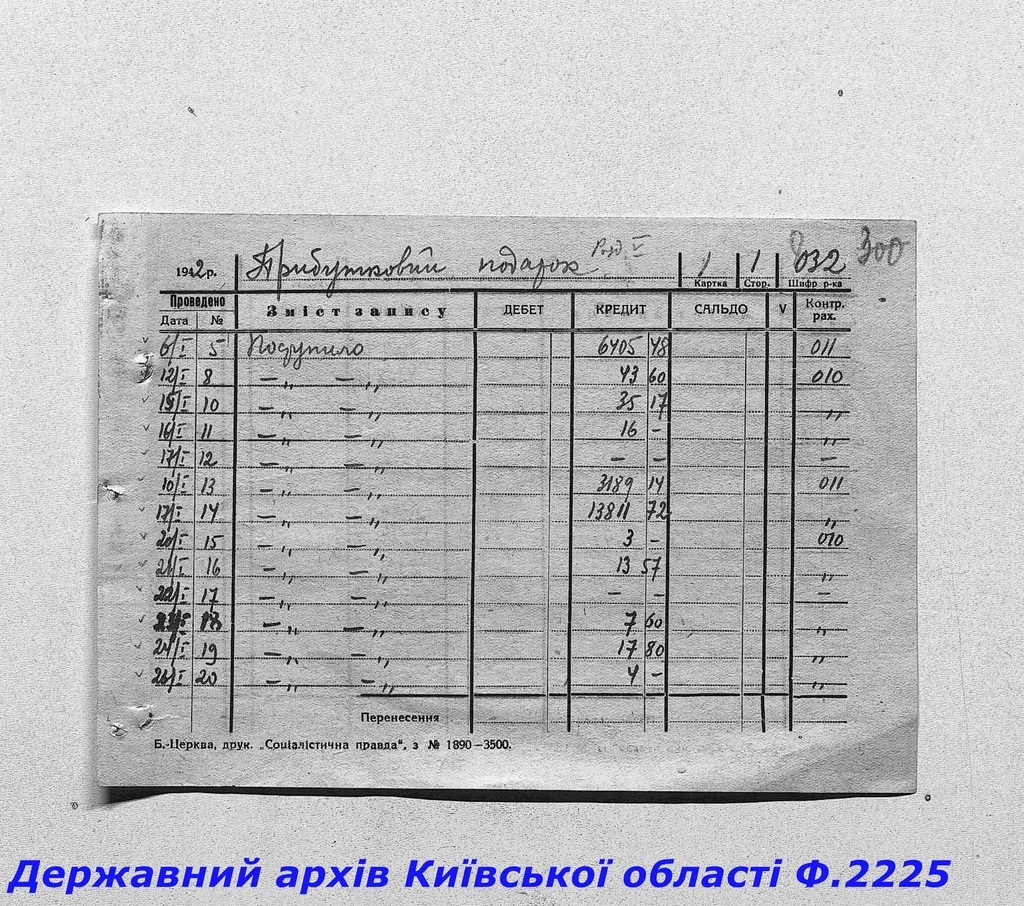 300
1942 р. Прибутковий подарок Розд V 1 1 032
Картка Стор. Шифр р-ка
Проведено Зміст запису ДЕБЕТ КРЕДИТ САЛЬДО V Контр. рах.
Дата №
6/I 5 Поступило 6405 48 011
12/I 8 — „ — „ 43 60 010
15/I 10 — „ — „ 35 17 „
16/I 11 — „ — „ 16 - „
17/I 12 — „ — „ — - —
10/I 13 — „ — „ 3189 14 011
17/I 14 — „ — „ 13811 72 „
20/I 15 — „ — „ 3 - 010
21/I 16 — „ — „ 13 57 „
22/I 17 — „ — „ — - —
23/I 18 — „ — „ 7 60 „
24/I 19 — „ — „ 17 80 „
26/I 20 — „ — „ 4 - „
Перенесення
Б.-Церква, друк. „Соціалістична правда“, з № 1890—3500.
Державний архів Київської області Ф.2225